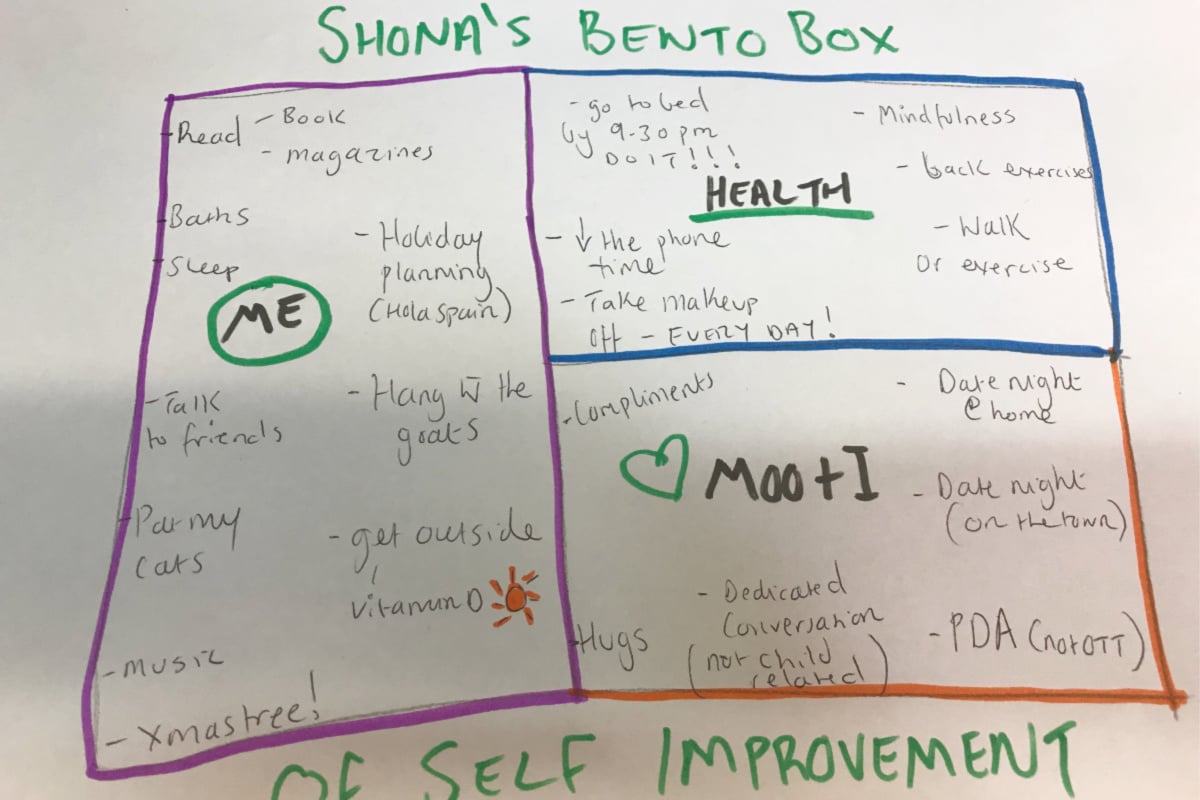 SHONA'S BENTO BOX
- Read - Book
- magazines
- Baths
- Sleep
ME
- Holiday
planning
(Hola Spain)
- Talk
to friends
- Hang w the
goats
- Pat my
cats
- get outside
vitamin D
- music
- Xmas tree!
- go to bed
by 9.30pm
DO IT!!!
HEALTH
- ↓ the phone
time
- Take makeup
off - EVERY DAY!
- Mindfulness
- back exercises
- Walk
or exercise
- Compliments
- Date night
@ home
MOO + I
- Date night
(on the town)
- Hugs
- Dedicated
Conversation
(not child
related)
- PDA (not OTT)
OF SELF IMPROVEMENT